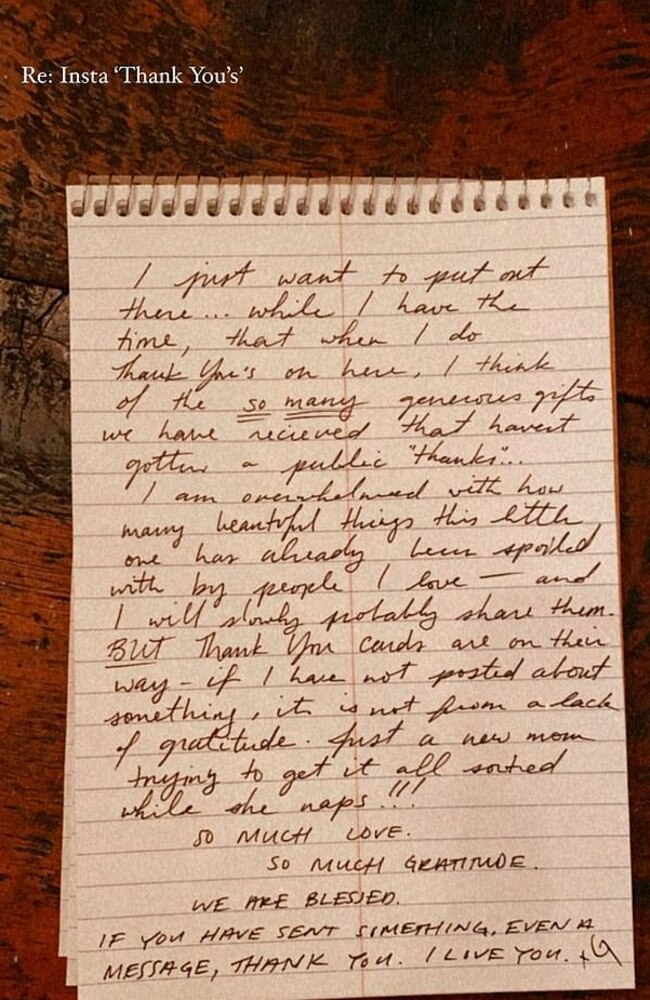 Re: Insta ‘Thank You’s’
I just want to put out
there... while I have the
time, that when I do
Thank You's on here, I think
of the so many generous gifts
we have recieved that havent
gotten a public "thanks"...
I am overwhelmed with how
many beautiful things this little
one has already been spoiled
with by people I love — and
I will slowly probably share them.
BUT Thank You cards are on their
way - if I have not posted about
something, its is not from a lack
of gratitude. Just a new mom
trying to get it all sorted
while she naps!!!
SO MUCH LOVE.
SO MUCH GRATITUDE.
WE ARE BLESSED.
IF YOU HAVE SENT SOMETHING, EVEN A
MESSAGE, THANK YOU. I LOVE YOU. xG